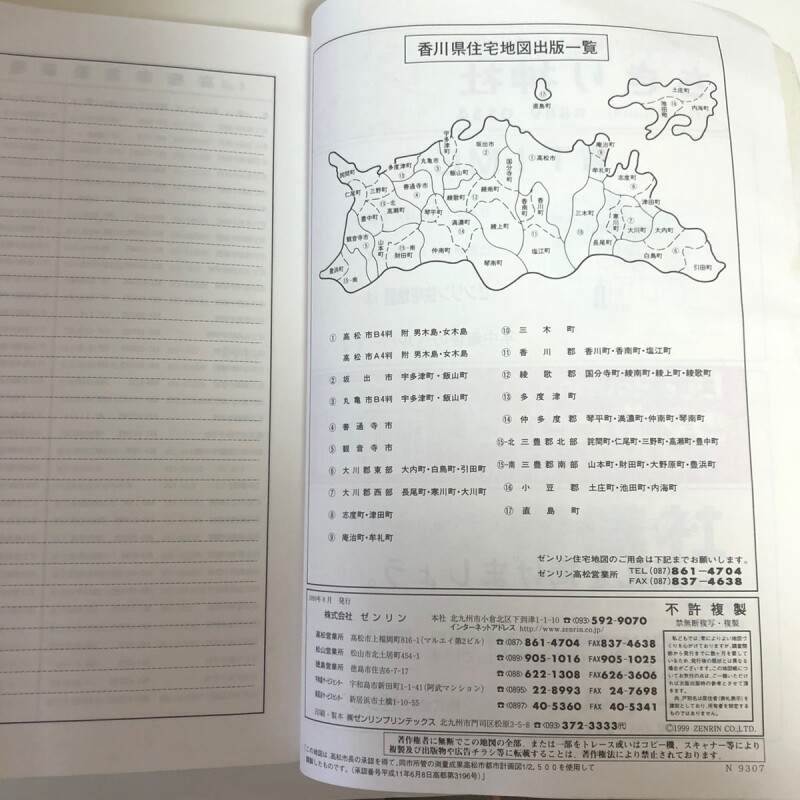 香川県住宅地図出版一覧
⑰
直島町
土庄町
⑯
池田町
内海町
宇多津町
坂出市
②
国分寺町
①高松市
庵治町
⑨
牟礼町
多度津町
⑬
丸亀市
③
飯山町
志度町
⑧
津田町
詫間町
仁尾町
三野町
⑮-北
高瀬町
善通寺市
④
綾歌町
綾南町
⑫
香南町
香川町
三木町
⑩
寒川町
⑦
大川町
大内町
豊中町
琴平町
満濃町
⑭
綾上町
⑪
観音寺市
⑤
山本町
⑮-南
財田町
仲南町
琴南町
塩江町
長尾町
白鳥町
⑥
引田町
豊浜町
⑮-南
① 高松市B4判 附 男木島・女木島
高松市A4判 附 男木島・女木島
② 坂出市 宇多津町・飯山町
③ 丸亀市B4判 宇多津町・飯山町
④ 善通寺市
⑤ 観音寺市
⑥ 大川郡東部 大内町・白鳥町・引田町
⑦ 大川郡西部 長尾町・寒川町・大川町
⑧ 志度町・津田町
⑨ 庵治町・牟礼町
⑩ 三木町
⑪ 香川郡 香川町・香南町・塩江町
⑫ 綾歌郡 国分寺町・綾南町・綾上町・綾歌町
⑬ 多度津町
⑭ 仲多度郡 琴平町・満濃町・仲南町・琴南町
⑮-北 三豊郡北部 詫間町・仁尾町・三野町・高瀬町・豊中町
⑮-南 三豊郡南部 山本町・財田町・大野原町・豊浜町
⑯ 小豆郡 土庄町・池田町・内海町
⑰ 直島町
ゼンリン住宅地図のご用命は下記までお願いします。
ゼンリン高松営業所 TEL(087)861-4704
FAX(087)837-4638
1999年8月 発行
株式会社 ゼンリン 本社 北九州市小倉北区下到津1-1-10 ☎(093)592-9070
インターネットアドレス http://www.zenrin.co.jp/
高松営業所 高松市上福岡町816-1(マルエイ第2ビル) ☎(087)861-4704 FAX837-4638
松山営業所 松山市北土居町454-1 ☎(089)905-1016 FAX905-1025
徳島営業所 徳島市住吉6-7-17 ☎(088)622-1308 FAX626-3606
宇和島市新田町1-1-41(阿武マンション) ☎(0895)22-8993 FAX 24-7698
新居浜市土橋1-10-55 ☎(0897)40-5360 FAX 40-5341
印刷・製本 ㈱ゼンリンプリンテックス 北九州市門司区松原3-5-8 ☎(093)372-3333㈹
不許複製
禁無断複写・複製
Ⓒ1999 ZENRIN CO.,LTD.
著作権者に無断でこの地図の全部、または一部をトレース或いはコピー機、スキャナー等により
複製及び出版物や広告チラシ等に転載することは、著作権法により禁止されております。
「この地図は、高松市長の承認を得て、同市所管の測量成果高松市都市計画図1/2,500を使用して
調製したものです。(承認番号平成11年6月8日高都第3196号)」
N 9307